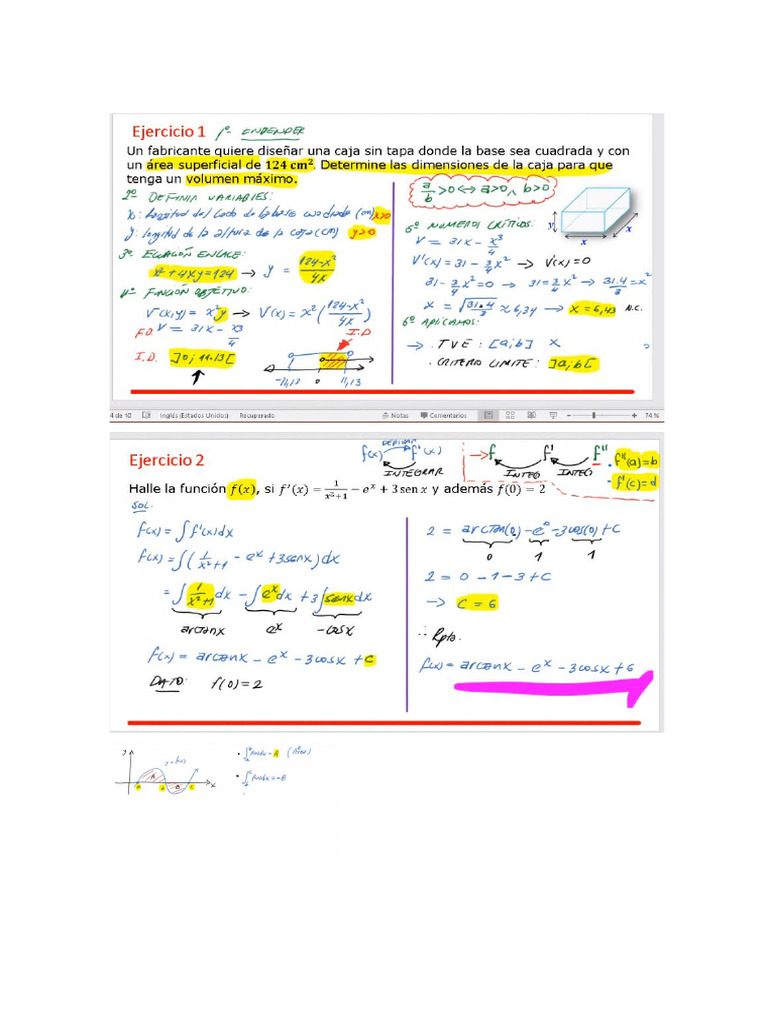 Ejercicio 1 1º- ENTENDER
Un fabricante quiere diseñar una caja sin tapa donde la base sea cuadrada y con
un área superficial de 124 cm². Determine las dimensiones de la caja para que
tenga un volumen máximo.
2º DEFINIR VARIABLES:
x: Longitud del lado de la base cuadrada (cm) x>0
y: longitud de la altura de la caja (cm) y>0
3º ECUACIÓN ENLACE:
x² + 4xy = 124 → y = (124-x²)/4x
4º FUNCIÓN OBJETIVO:
V(x,y) = x²y → V(x) = x²((124-x²)/4x)
F.O V = 31x - x³/4
I.D
I.D. ]0; 11.13[
-11,13 0 11,13
a/b >0 ↔ a>0 ∧ b>0
y x x
5º NÚMEROS CRÍTICOS:
V = 31x - x³/4
V'(x) = 31 - 3/4 x² → V'(x) = 0
31 - 3/4 x² = 0 → 31 = 3/4 x² → 31.4/3 = x²
x = √(31.4/3) ≈ 6,34 → x = 6,43 N.C.
6º APLICAMOS:
→ . TVE : [a;b] x
. CRITERIO LIMITE: ]a;b[
4 de 10 Inglés (Estados Unidos) Recuperado Notas Comentarios 74 %
Ejercicio 2
DERIVAR
f(x) f'(x)
INTEGRAR
→ f f' f''
INTEG INTEG
• f''(a)=b
- f'(c)=d
Halle la función f(x), si f'(x) = 1/(x²+1) − eˣ + 3 sen x y además f(0) = 2
SOL.
f(x) = ∫ f'(x)dx
f(x) = ∫ (1/(x²+1) - eˣ + 3senx) dx
= ∫ 1/(x²+1) dx - ∫ eˣ dx + 3 ∫ senx dx
arctanx eˣ -cosx
f(x) = arctanx - eˣ - 3cosx + C
DATO: f(0) = 2
2 = arctan(0) - e⁰ - 3cos(0) + C
0 1 1
2 = 0 - 1 - 3 + C
→ C = 6
∴ Rpta.
f(x) = arctanx - eˣ - 3cosx + 6
y y=f(x)
A B x